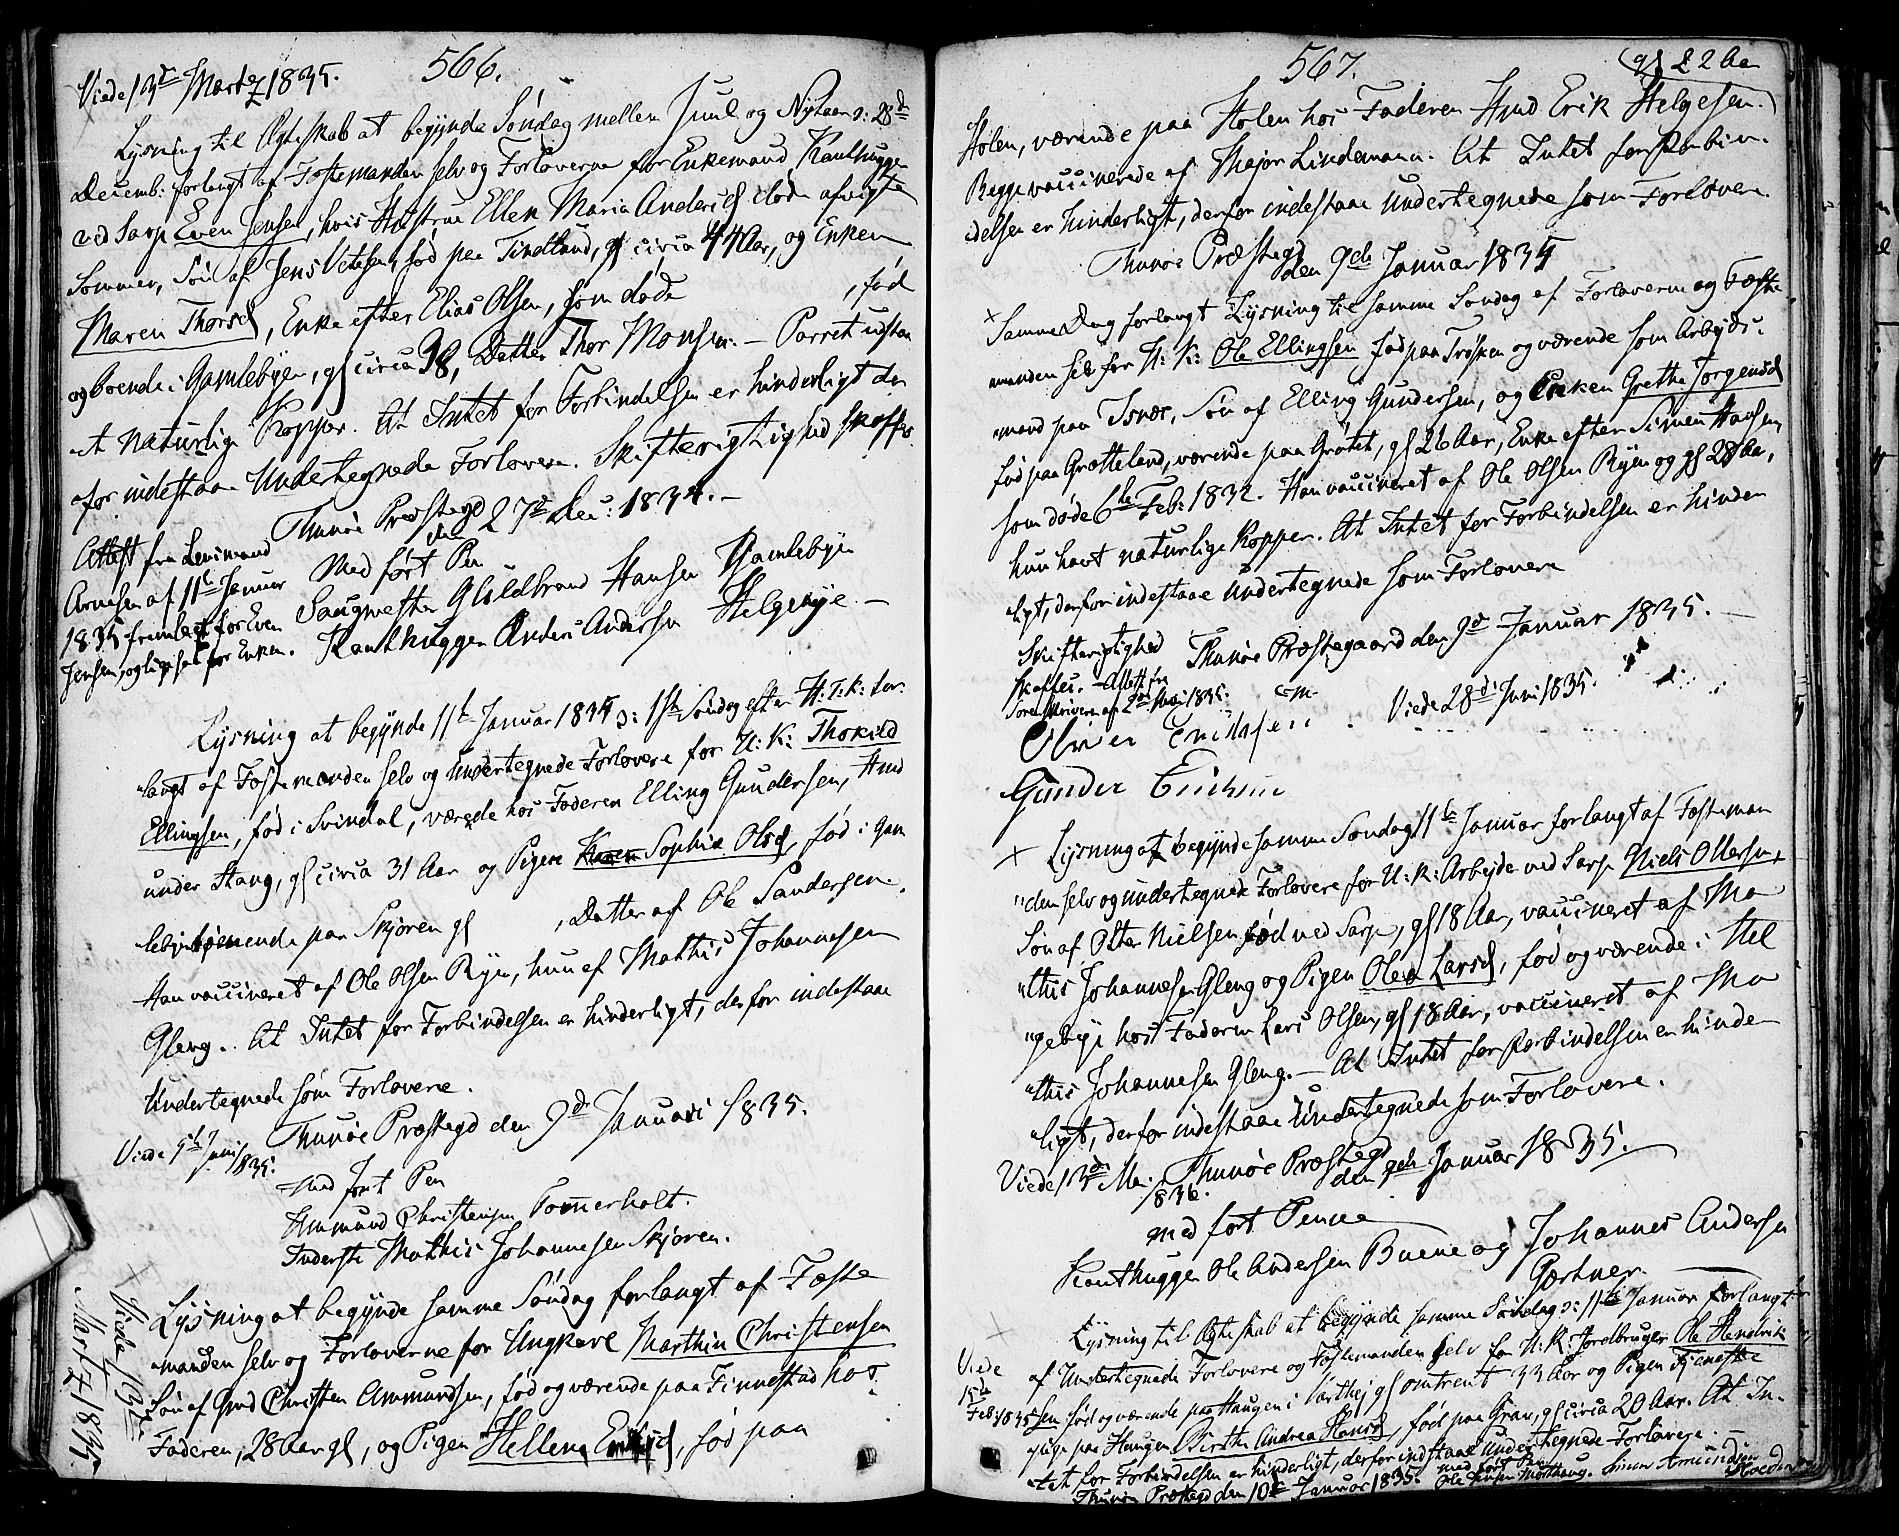 566.
Viede 13de Martz 1835.
Lysning til Ægteskab at begynde Søndag mellem Juul og Nytaar ɔ: 28d
Decemb: forlangt af Fæstemanden selv og Forloverne for Enkemand Kanthugger
ved Sarp Even Jensen, hvis Hustrue Ellen Maria Andersd døde afvigte
Sommer, Søn af Jens, fød paa Tindlund, gl circa 44 Aar, og Enken
Maren Thorsd, Enke efter Elias Olsen, som døde , fød
og boende i Gamlebyen, gl circa 38, Datter Thor Monsen. – Parret udstan
-et naturlige Kopper. At Intet for Forbindelsen er hinderligt der
-for indestaae Undertegnede Forlovere. Skifterigtighed skaffes.
Thunøe Præstegd den 27de Dec: 1834. –
Attest fra Lensmand
Arnesen af 11te Januar
1835 fremlagt for Even
Jensen, og ligesaa for Enken.
Med ført Pen
Saugmester Guldbrand Hansen Gamlebyen
Kanthugger Anders Andersen Helgebye. –
Lysning at begynde 11te Januar 1835 ɔ: 1ste Søndag efter H: 3: K: for-
langt af Fæstemanden selv og undertegnede Forlovere for U: K: Thorkild
Ellingsen, fød i Svindal, værende hos Faderen Elling Gundersen, Hmd
under Stang, gl circa 31 Aar og Pigen Karen Sophia Olsd, fød i Gam
lebyen tjenende paa Skjøren gl , Datter af Ole Sandersen.
Han vaccineret af Ole Olsen Ryen, hun af Mathis Johannesen
Gleng. At Intet for Forbindelsen er hinderligt, derfor indestaae
Undertegnede som Forlovere.
Thunøe Præstegd den 9de Januari 1835.
Viede 5te Juni 1835.
Med ført Pen
Ammund Christensen Tomerholt.
Inderste Mathis Johannesen Skjøren.
× Viede 13de Martz 1835
Lysning at begynde samme Søndag forlangt af Fæste
manden selv og Forloverne for Ungkarl Marthin Christensen
Søn af Gmd Christen Ammundsen, fød og værende paa Finnestad hos
Faderen, 28 Aar gl, og Pigen Hellena Eriksd, fød paa
567.
gl 22 Aar
Holen, værende paa Holen hos Faderen Hmd Erik Helgesen.
Begge vaccinerede af Major Lindemann. At Intet for Forbin-
delsen er hinderligt, derfor indestaae Undertegnede som Forlovere.
Thunøe Præstegd den 9de Januar 1835
× Samme Dag forlangt Lysning til samme Søndag af Forloverne og Fæste
manden selv for U: K: Ole Ellingsen fød paa Trøsken og værende som Arbejds-
mand paa Isnæs, Søn af Elling Gundersen, og Enken Grethe Jørgensd
fød paa Grotteland, værende paa Grotet, gl 26 Aar, Enke efter Simen Hansen,
som døde 6te Feb: 1832. Han vaccineret af Ole Olsen Ryen og gl 28 Aar,
hun havt naturlige Kopper. At Intet for Forbindelsen er hinder
ligt, derfor indestaae Undertegnede som Forlovere
Skifterigtighed
skaffes. – Attest fra
Sorenskriveren af 2den Mai 1835.
Thunøe Præstegaard den 9de Januar 1835.
Viede 28de Juni 1835.
Gunder
× Lysning at begynde samme Søndag 11te Januar forlangt af Fæsteman
den selv og undertegnede Forlovere for U: K: Arbejder ved Sarp Niels Ottersen,
Søn af Otter Nielsen fød ved Sarp, gl 18 Aar, vaccineret af Ma
this Johannesen Gleng og Pigen Olea Larsd, fød og værende i Hel
gebye hos Faderen Lars Olsen, gl 18 Aar, vaccineret af Ma
this Johannesen Gleng. – At Intet for Forbindelsen er hinder
ligt, derfor indestaae Undertegnede som Forlovere.
Viede 13de Mai 1836.
Thunøe Præstegd den 9de Januar 1835.
med ført Penne
Kanthugger Ole Andersen Buene og Johannes Andersen
Gartner.
× Lysning til Ægteskab at begynde samme Søndag ɔ: 11te Januar forlangt
af Undertegnede Forlovere og Fæstemanden selv for U: K: Jordbruger Ole Hendrik
sen fød og værende paa Haugen i Varteig gl omtrent 33 Aar og Pigen Tjeneste
pige paa Haugen Birthe Andrea Hansd, fød paa Grav, gl circa 20 Aar. At In-
tet for Forbindelsen er hinderligt, derfor indestaae Undertegnede Forlovere.
Viede 15de Feb: 1835
Thunøe Præstegd den 10de Januar 1835.
med ført Pen
Ole Jensen Simen Amundsen